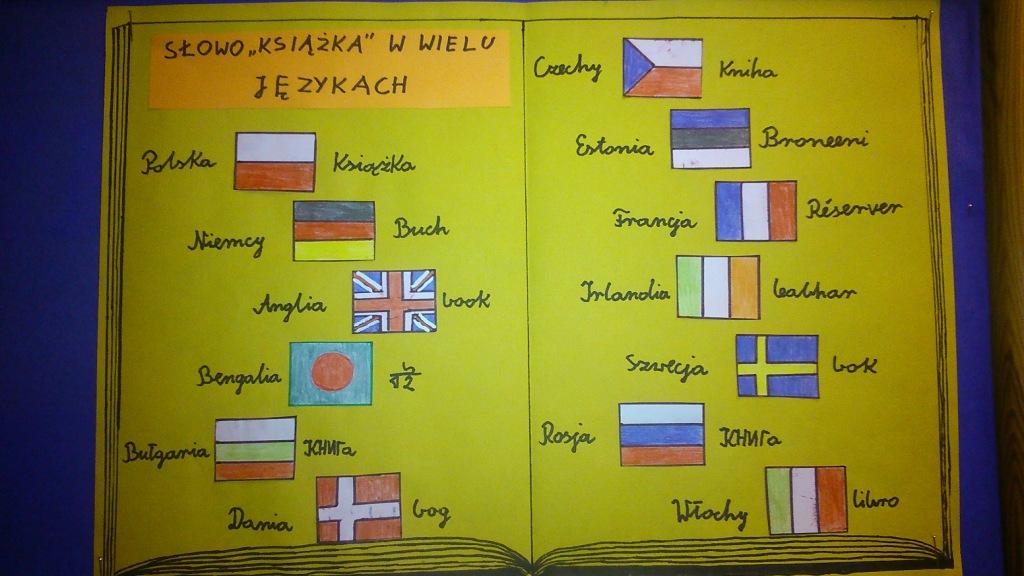 SŁOWO „KSIĄŻKA” W WIELU
JĘZYKACH
Polska Książka
Niemcy Buch
Anglia book
Bengalia
Bułgaria книга
Dania bog
Czechy Kniha
Estonia Broneeni
Francja Réserver
Irlandia leabhar
Szwecja bok
Rosja книга
Włochy libro